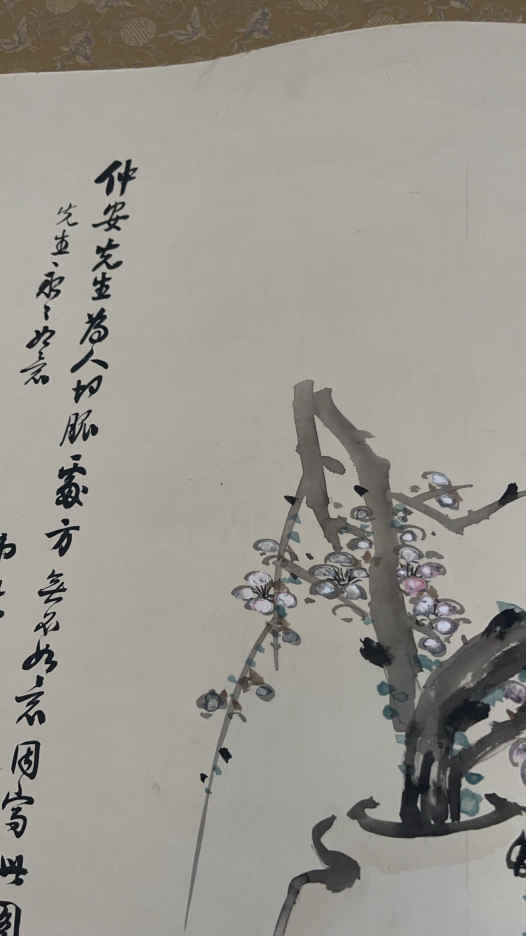 仲安先生為人切脈處方無不如意因寫此圖
先生亦之如意